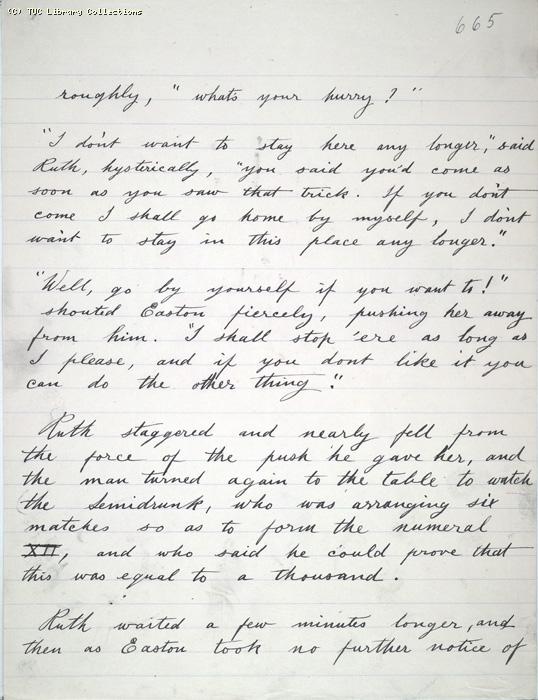 (C) TUC Library Collections
665
roughly, " whats your hurry? "
"I don't want to stay here any longer," said
Ruth, hysterically, "you said you'd come as
soon as you saw that trick. If you don't
come I shall go home by myself, I don't
want to stay in this place any longer."
"Well, go by yourself if you want to!"
shouted Easton fiercely, pushing her away
from him. "I shall stop 'ere as long as
I please, and if you dont like it you
can do the other thing".
Ruth staggered and nearly fell from
the force of the push he gave her, and
the man turned again to the table to watch
the Semidrunk, who was arranging six
matches so as to form the numeral
XII, and who said he could prove that
this was equal to a thousand.
Ruth waited a few minutes longer, and
then as Easton took no further notice of